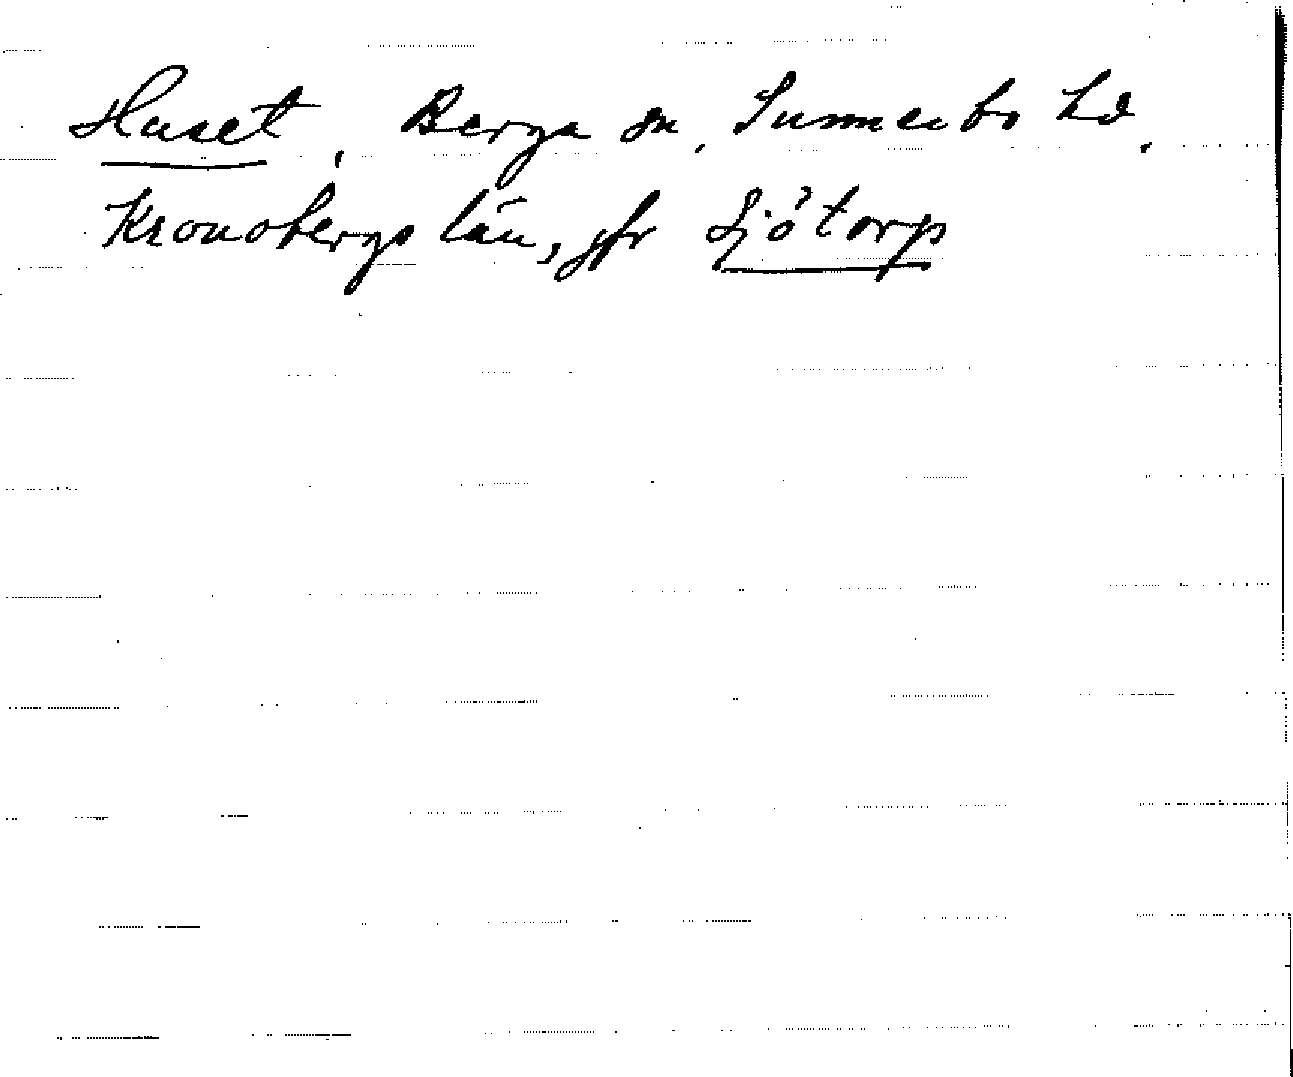 Huset, Berga sn, Sunnerbo hd,
Kronobergs län, jfr Sjötorp